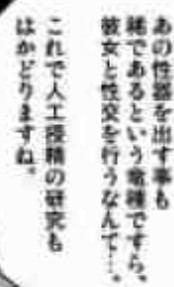 あの性器を出す事も
稀であるという竜種ですら、
彼女と性交を行うなんて…。
これで人工授精の研究も
はかどりますね。